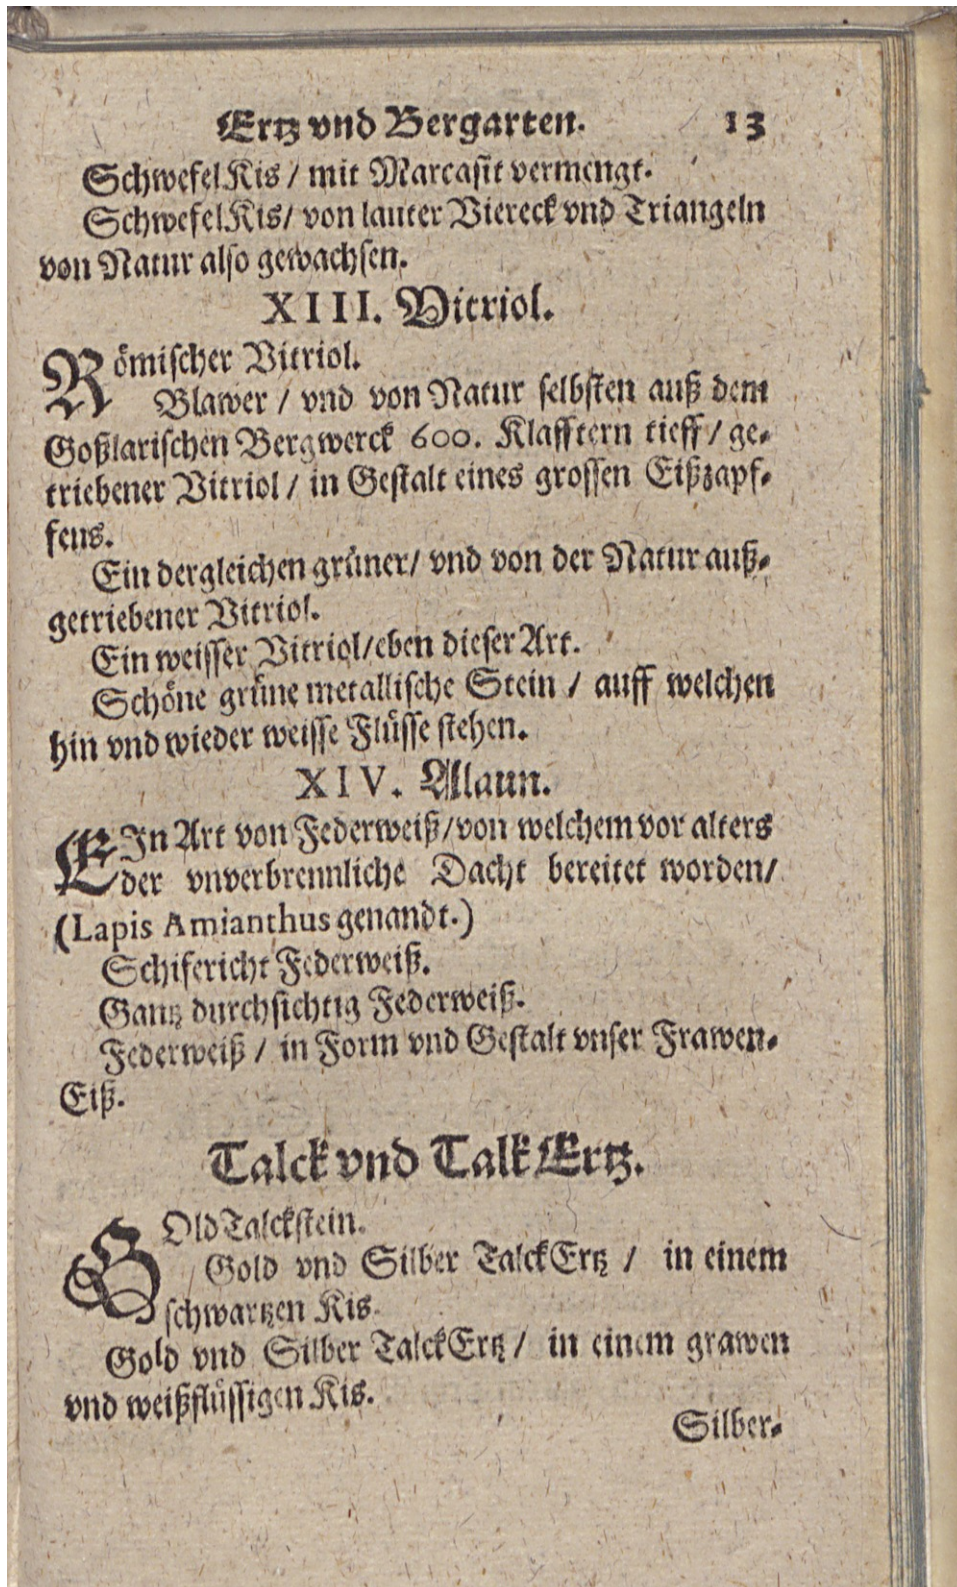 Ertz vnd Bergarten. 13
SchwefelKis / mit Marcasit vermengt.
SchwefelKis / von lauter Viereck vnd Triangeln
von Natur also gewachsen.
XIII. Vitriol.
Römischer Vitriol.
Blawer / vnd von Natur selbsten auß dem
Goßlarischen Bergwerck 600. Klafftern tieff / ge-
triebener Vitriol / in Gestalt eines grossen Eißzapf-
fens.
Ein dergleichen grüner / vnd von der Natur auß-
getriebener Vitriol.
Ein weisser Vitriol / eben dieser Art.
Schöne grüne metallische Stein / auff welchen
hin vnd wieder weisse Flüsse stehen.
XIV. Alaun.
EIn Art von Federweiß / von welchem vor alters
der vnverbrennliche Dacht bereitet worden /
(Lapis Amianthus genandt.)
Schifericht Federweiß.
Gantz durchsichtig Federweiß.
Federweiß / in Form vnd Gestalt vnser Frawen-
Eiß.
Talck vnd Talk Ertz.
GOld Talckstein.
Gold vnd Silber TalckErtz / in einem
schwartzen Kis.
Gold vnd Silber TalckErtz / in einem grawen
vnd weißflüssigen Kis.
Silber-